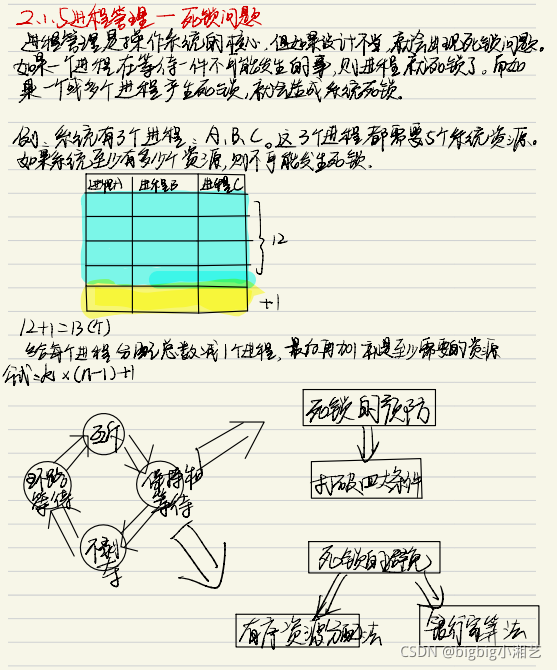 2.1.5进程管理—死锁问题
进程管理是操作系统的核心,但如果设计不当,就会出现死锁问题。
如果一个进程在等待一件不可能发生的事,则进程就死锁了。而如
果一个或多个进程产生死锁,就会造成系统死锁.
例、系统有3个进程:A、B、C。这3个进程都需要5个系统资源。
如果系统至少有多少个资源,则不可能发生死锁.
进程A 进程B 进程C
12
+1
12+1=13(个)
给每个进程分配总数减1个进程,最后再加1就是至少需要的资源
公式= × (n-1)+1
互斥
保持和
等待
不剥
夺
环路
等待
死锁的预防
打破四大条件
死锁的避免
有序资源分配法
银行家算法
CSDN @bigbig小湘艺